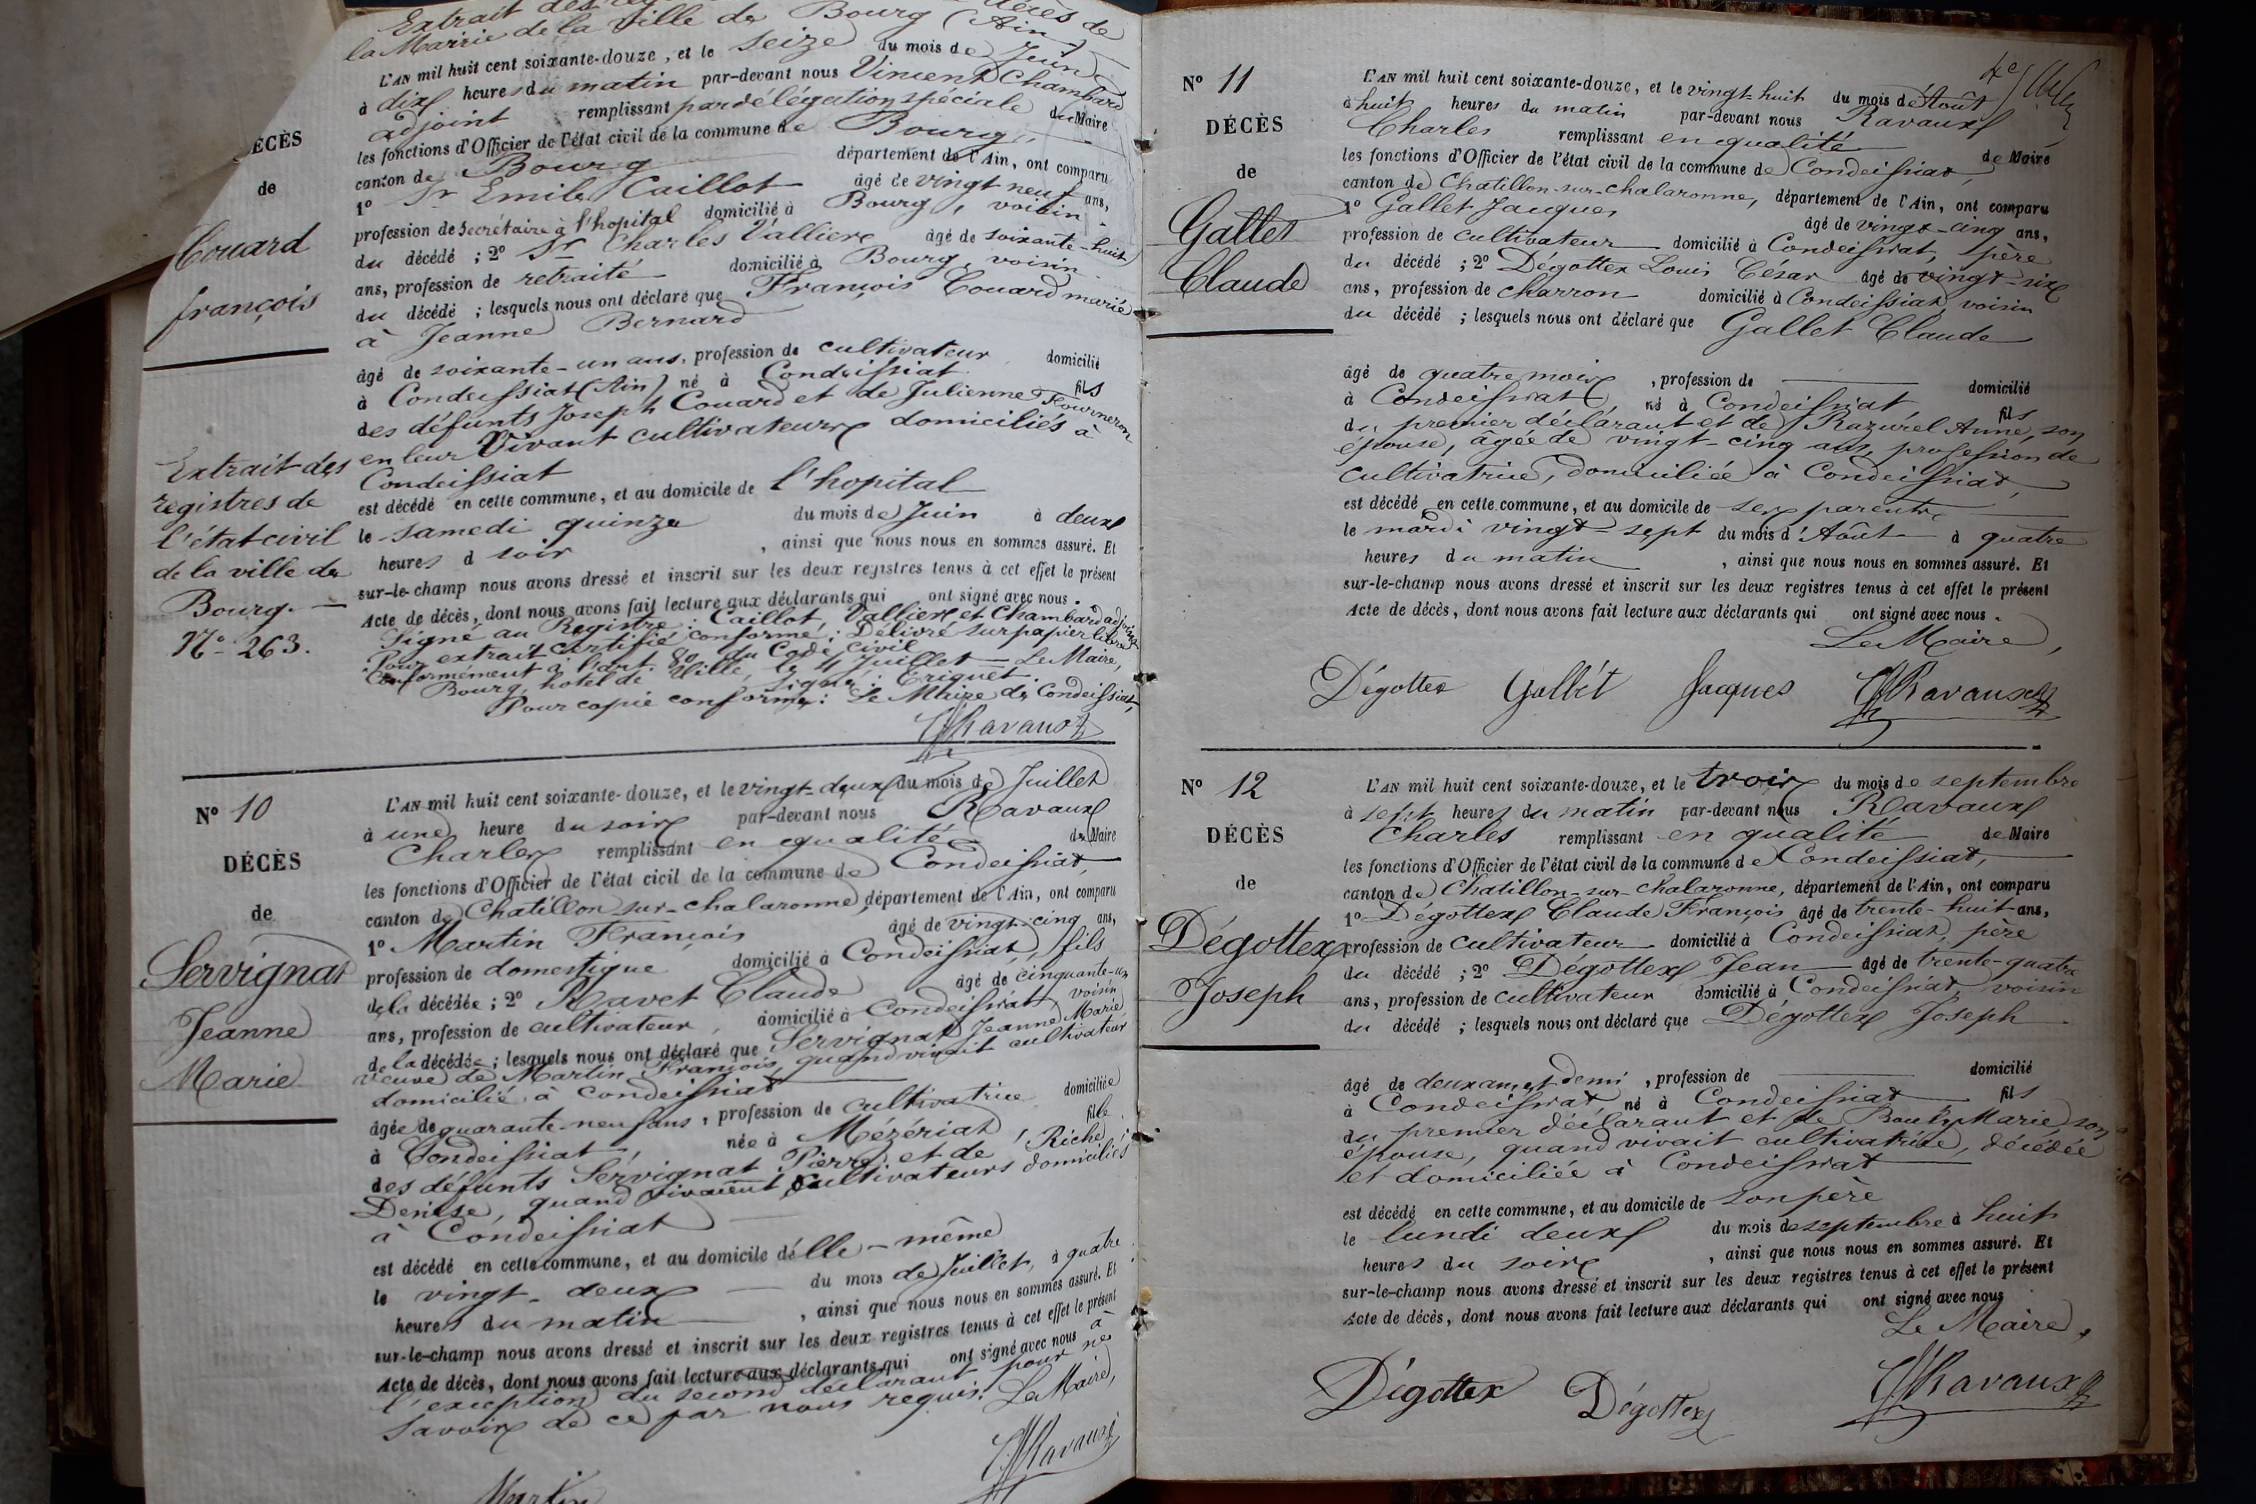 Extrait des décès de
la Mairie de la Ville de Bourg (Ain)
L'AN mil huit cent soixante-douze, et le seize du mois de Juin
à dix heures du matin par-devant nous Vincent Chambard
adjoint remplissant par délégation spéciale du Maire
les fonctions d'Officier de l'état civil de la commune de Bourg,
canton de Bourg département de l'Ain, ont comparu
1º Sr Emile Caillot âgé de vingt neuf ans,
profession de Secrétaire à l'hopital domicilié à Bourg, voisin
du décédé ; 2º Sr Charles Vallier âgé de soixante-huit
ans, profession de retraité domicilié à Bourg, voisin
du décédé ; lesquels nous ont déclaré que François Couard marié
à Jeanne Bernard
âgé de soixante-un ans, profession de cultivateur domicilié
à Condeissiat (Ain) né à Condeissiat fils
des défunts Joseph Couard et de Julienne Fourneron
en leur Vivant cultivateurs domiciliés à
Condeissiat
est décédé en cette commune, et au domicile de l'hopital
le samedi quinze du mois de Juin à deux
heures d soir , ainsi que nous nous en sommes assuré. Et
sur-le-champ nous avons dressé et inscrit sur les deux registres tenus à cet effet le présent
Acte de décès, dont nous avons fait lecture aux déclarants qui ont signé avec nous.
Signé au Registre : Caillot, Vallier et Chambard adjoint
Pour extrait certifié conforme : Délivré sur papier libre
Conformément à l'art. 80 du Code Civil
Bourg, hotel de Ville, le 4 Juillet Le Maire,
signé :
Pour copie conforme : Le Maire de Condeissiat,
Ravaux
ÉCÈS
de
Couard
françois
Extrait des
registres de
l'état civil
de la ville de
Bourg.
Nº 263.
Nº 10
DÉCÈS
de
Servignat
Jeanne
Marie
L'AN mil huit cent soixante-douze, et le vingt-deux du mois de Juillet
à une heure du soir par-devant nous Ravaux
Charles remplissant en qualité de Maire
les fonctions d'Officier de l'état cicil de la commune de Condeissiat,
canton de Chatillon-sur-chalaronne, département de l'Ain, ont comparu
1º Martin François âgé de vingt-cinq ans,
profession de domestique domicilié à Condeissiat, fils
de la décédée ; 2º Ravet Claude âgé de cinquante-un
ans, profession de cultivateur, domicilié à Condeissiat, voisin
de la décédée ; lesquels nous ont déclaré que Servignat Jeanne Marie,
veuve de Martin François, quand vivait cultivateur
domicilié à Condeissiat
âgée de quarante-neuf ans, profession de cultivatrice domiciliée
à Condeissiat, née à Mézériat, fille
des défunts Servignat Pierre et de Riche
Denise, quand vivaient cultivateurs domiciliés
à Condeissiat
est décédé en cette commune, et au domicile d'elle-même
le vingt-deux du mois de Juillet, à quatre
heures du matin , ainsi que nous nous en sommes assuré. Et
sur-le-champ nous avons dressé et inscrit sur les deux registres tenus à cet effet le présent
Acte de décès, dont nous avons fait lecture aux déclarants qui ont signé avec nous à
l'exception du second déclarant pour ne
savoir de ce par nous requis. Le Maire,
Martin Ravaux
Nº 11
DÉCÈS
de
Gallet
Claude
L'AN mil huit cent soixante-douze, et le vingt-huit du mois d'Août
à huit heures du matin par-devant nous Ravaux
Charles remplissant en qualité de Maire
les fonctions d'Officier de l'état civil de la commune de Condeissiat,
canton de Chatillon-sur-chalaronne, département de l'Ain, ont comparu
1º Gallet Jacques âgé de vingt-cinq ans,
profession de cultivateur domicilié à Condeissiat, père
du décédé ; 2º Dégottex Louis César âgé de vingt-six
ans, profession de charron domicilié à Condeissiat, voisin
du décédé ; lesquels nous ont déclaré que Gallet Claude
âgé de quatre mois , profession de domicilié
à Condeissiat, né à Condeissiat fils
du premier déclarant et de Razurel Anne, son
épouse, âgée de vingt-cinq ans, profession de
cultivatrice, domiciliée à Condeissiat,
est décédé en cette commune, et au domicile de ses parents
le mardi vingt-sept du mois d'Août à quatre
heures du matin , ainsi que nous nous en sommes assuré. Et
sur-le-champ nous avons dressé et inscrit sur les deux registres tenus à cet effet le présent
Acte de décès, dont nous avons fait lecture aux déclarants qui ont signé avec nous.
Le Maire,
Dégottex Gallet Jacques Ravaux
Nº 12
DÉCÈS
de
Dégottex
Joseph
L'AN mil huit cent soixante-douze, et le trois du mois de septembre
à sept heures du matin par-devant nous Ravaux
Charles remplissant en qualité de Maire
les fonctions d'Officier de l'état civil de la commune de Condeissiat,
canton de Chatillon-sur-chalaronne, département de l'Ain, ont comparu
1º Dégottex Claude François âgé de trente-huit ans,
profession de cultivateur domicilié à Condeissiat, père
du décédé ; 2º Dégottex Jean âgé de trente-quatre
ans, profession de cultivateur domicilié à Condeissiat, voisin
du décédé ; lesquels nous ont déclaré que Dégottex Joseph
âgé de deux ans et demi , profession de domicilié
à Condeissiat, né à Condeissiat fils
du premier déclarant et de Marie, son
épouse, quand vivait cultivatrice, décédée
et domiciliée à Condeissiat
est décédé en cette commune, et au domicile de son père
le lundi deux du mois de septembre à huit
heures du soir , ainsi que nous nous en sommes assuré. Et
sur-le-champ nous avons dressé et inscrit sur les deux registres tenus à cet effet le présent
Acte de décès, dont nous avons fait lecture aux déclarants qui ont signé avec nous
Le Maire,
Dégottex Dégottex Ravaux